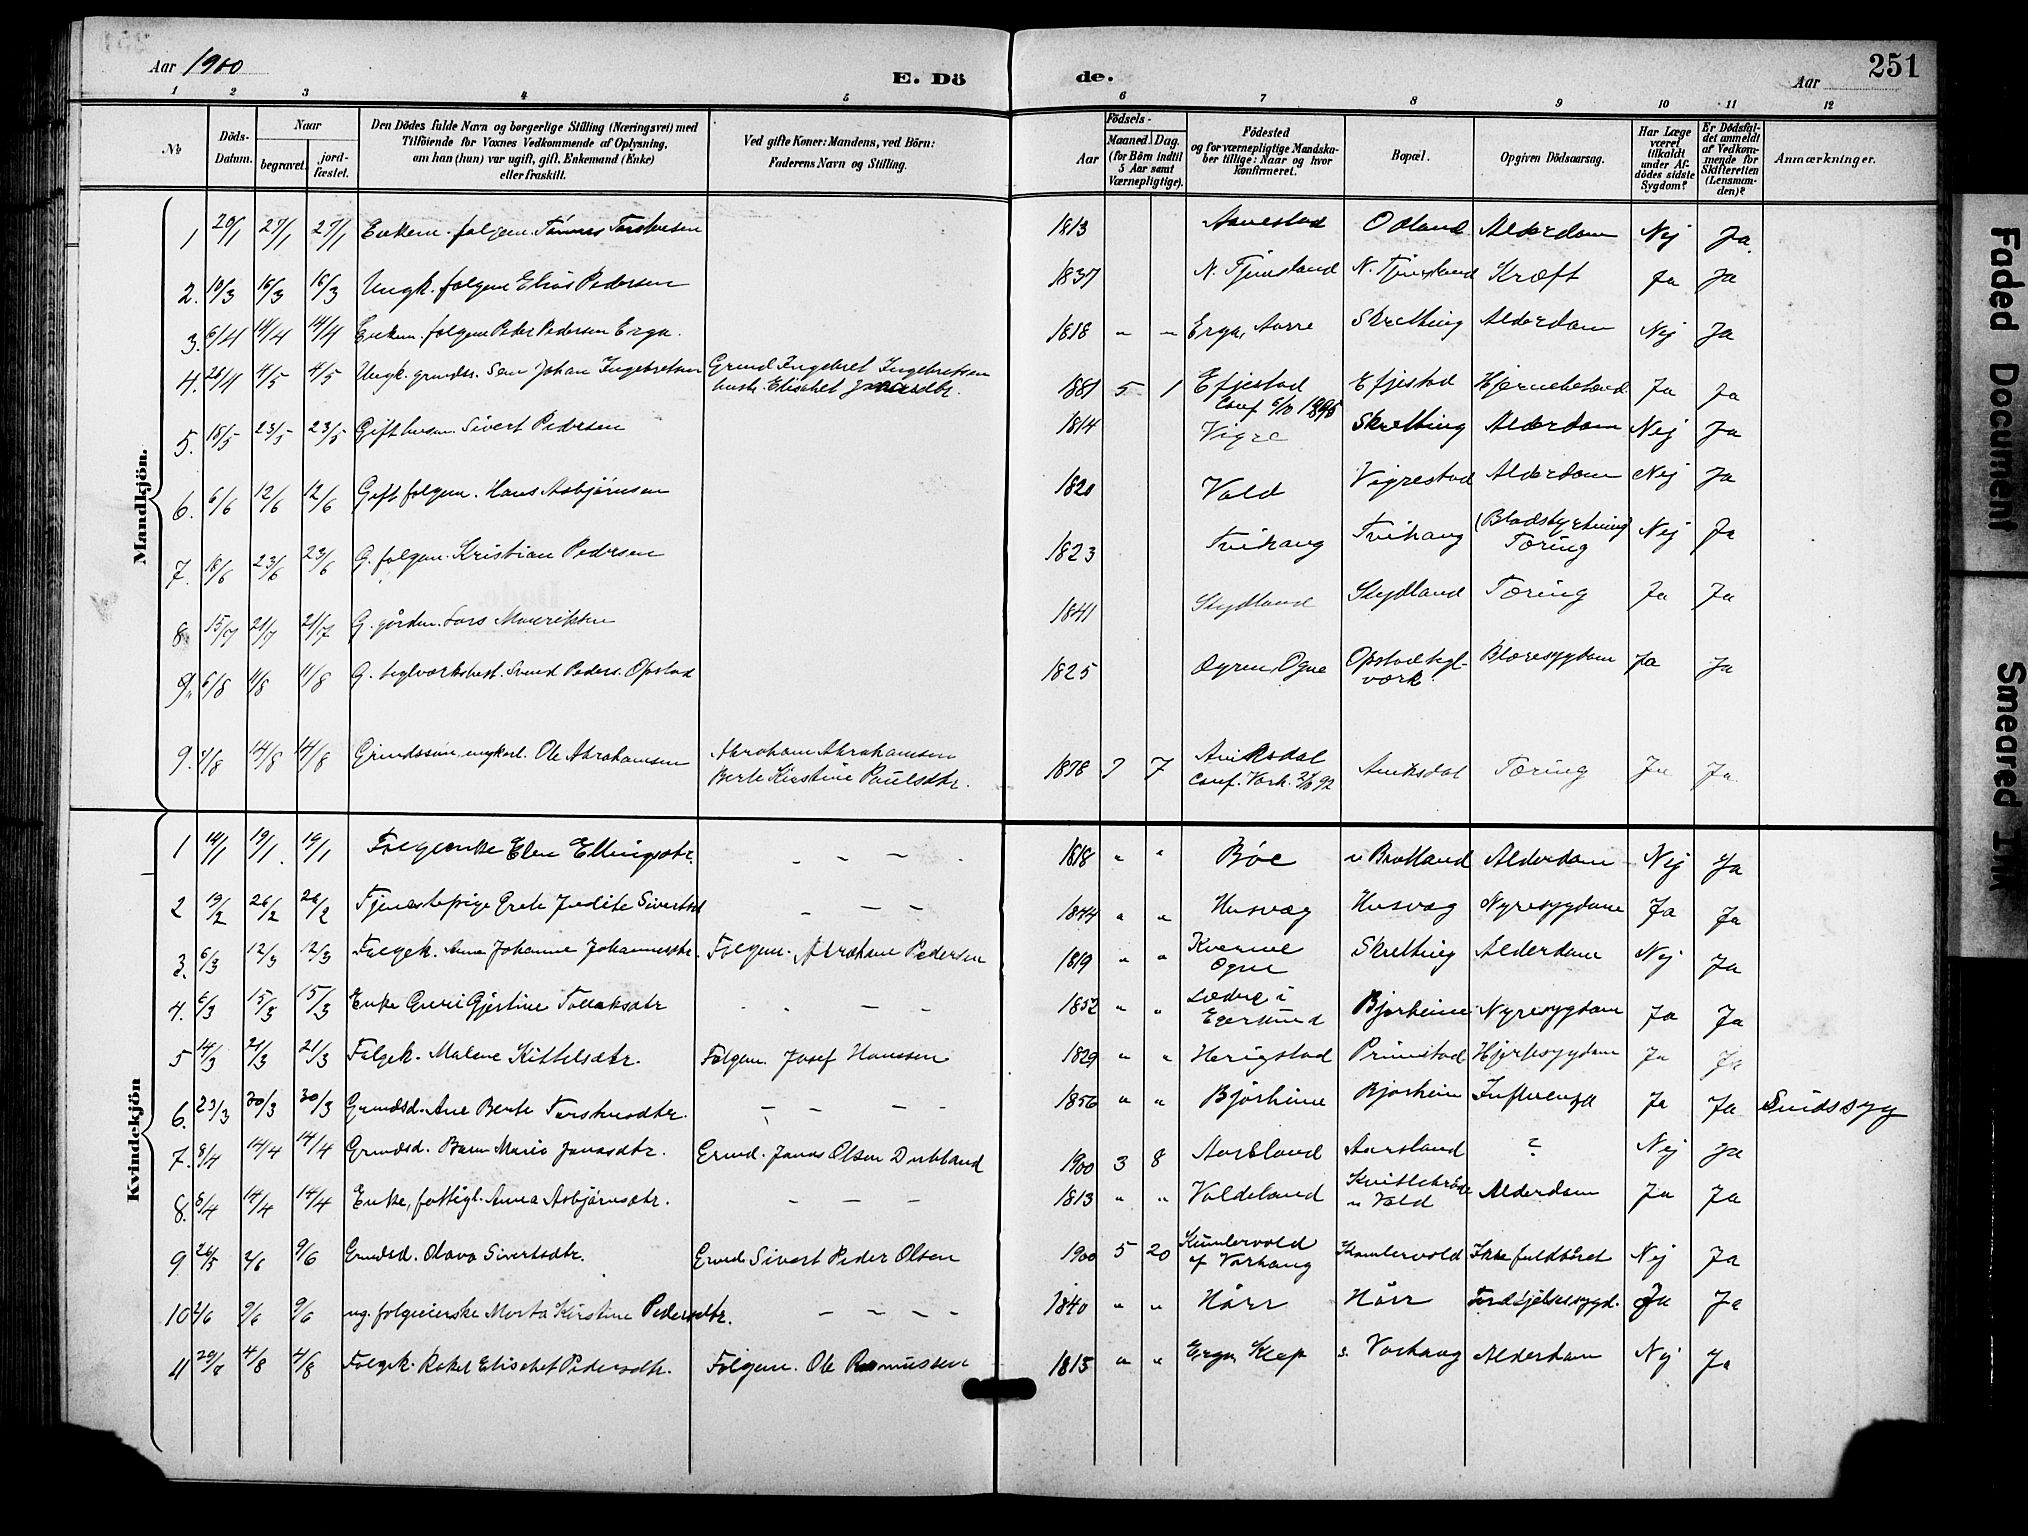 Aar 1900
E. Dö de.
Aar
251
1 2 3 4 5 6 7 8 9 10 11 12
No
Döds-Datum.
Naar
begravet.
jord-fæstet.
Den Dödes fulde Navn og borgerlige Stilling (Næringsvei) med
Tilföiende for Voxnes Vedkommende af Oplysning,
om han (hun) var ugift, gift, Enkemand (Enke)
eller fraskilt.
Ved gifte Koner: Mandens, ved Börn:
Faderens Navn og Stilling.
Födsels-
Aar
Maaned. Dag.
(for Börn indtil
5 Aar samt
Værnepligtige).
Födested
og for værnepligtige Mandska-
ber tillige: Naar og hvor
konfirmeret.
Bopæl.
Opgiven Dödsaarsag.
Har Læge
været
tilkaldt
under Af-
dödes sidste
Sygdom?
Er Dödsfal-
det anmeldt
af Vedkom-
mende for
Skifteretten
(Lensman-
den)?
Anmærkninger.
Mandkjön.
1 20/1 27/1 27/1 Enkem. folgem. Tönnes 1813 Odland Alderdom Nej Ja
2. 10/3 16/3 16/3 Ungk. folgem Elias Pedersen 1837 N. Tjemsland N. Tjemsland Kræft Ja Ja
3. 6/4 14/4 14/4 Enkem. folgem Peder Pedersen Erga. 1818 " " Erga, Skretting Alderdom Nej Ja
4. 4/5 4/5 Ungk. grundss. Sön Johan Ingebretsen Grmd Ingebret Ingebretsen
hustr. Elisabet 1881 5 1 Efjestad
Conf 1896 Efjestad Ja Ja
5. 18/5 23/5 23/5 Gift husm. Sivert Pedersen 1814 Vigre Skretting Alderdom Nej Ja
6. 6/6 12/6 12/6 Gift folgem. Hans Asbjørnsen 1820 Vold Vigrestad Alderdom Nej Ja
7. 18/6 23/6 23/6 G. folgem. Kristian Pedersen 1823 Tvihaug Tvihaug (Blodstyrtning)
Tæring Nej Ja
8. 15/7 21/7 21/7 G. gårdm. Lars Mauritsen 1841 Stydland Tæring Ja Ja
9. 6/8 11/8 11/8 G. teglværksbest. Svend Peders. Opstad 1825 Ogne Opstad tegl-
værk Blæresygdom Ja Ja
9. 14/8 14/8 Grundssön ungkarl. Ole Abrahamsen Abraham Abrahamsen
Berte Kirstine Paulsdtr. 1878 7 7 Aniksdal
Conf. Varh. 92 Aniksdal Tæring Ja Ja
Kvindekjön
1 14/1 19/1 19/1 Folgenke Elen Ellingsdtr. - - - - 1818 " " Bøe Alderdom Nej Ja
2 19/2 26/2 26/2 Tjenestepige Grete Judite Sivertsd - - - 1844 " " Husvæg Husvæg Nyresygdom Ja Ja
3. 6/3 12/3 12/3 Folgek. Anna Johanne Johannesdtr. Folgem. Abraham Pedersen 1819 " " Kverme
Ogne Skretting Alderdom Nej Ja
4. 6/3 15/3 15/3 Enke Guri Gjertine Tollaksdtr - - - - 1852 " " i
Egersund Bjorheim Nyresygdom Ja Ja
5 14/3 21/3 21/3 Folgek. Malene Kittelsdtr. Folgem. Josef Hanssen 1829 " " Herigstad Primstad Hjertesygdom Ja Ja
6. 23/3 30/3 30/3 Grmdsd. Ane Berte - - - - 1856 " " Bjorheim Bjorheim Influenza Ja Ja Sindssyg
7. 8/4 14/4 14/4 Grmdsd. Barn Maria Jonasdtr. Grmd. Jonas Olsen 1900 3 8 Aarsland Aarsland ? Nej Ja
8. 8/4 14/4 14/4 Enke, fattigl. Anna Asbjørnsdtr. - - - 1813 " " Voldeland
Vold Alderdom Ja Ja
9 26/5 9/6 Grmdsd. Olava Sivertsdtr. Grmd Sivert Peder Olsen 1900 5 20
af Varhaug Ikke fuldbåret Nej Ja
10 2/6 9/6 9/6 ug. folgeierske Marta Kirstine Pedersdtr. - - - - 1840 " " Hårr Hårr Ja Ja
11 4/8 4/8 Folgek. Rakel Elisabet Pedersdtr. Folgem. Ole Rasmussen 1815 " " Erga Klep s. Varhaug Alderdom Nej Ja
Faded Document
Smeared Ink